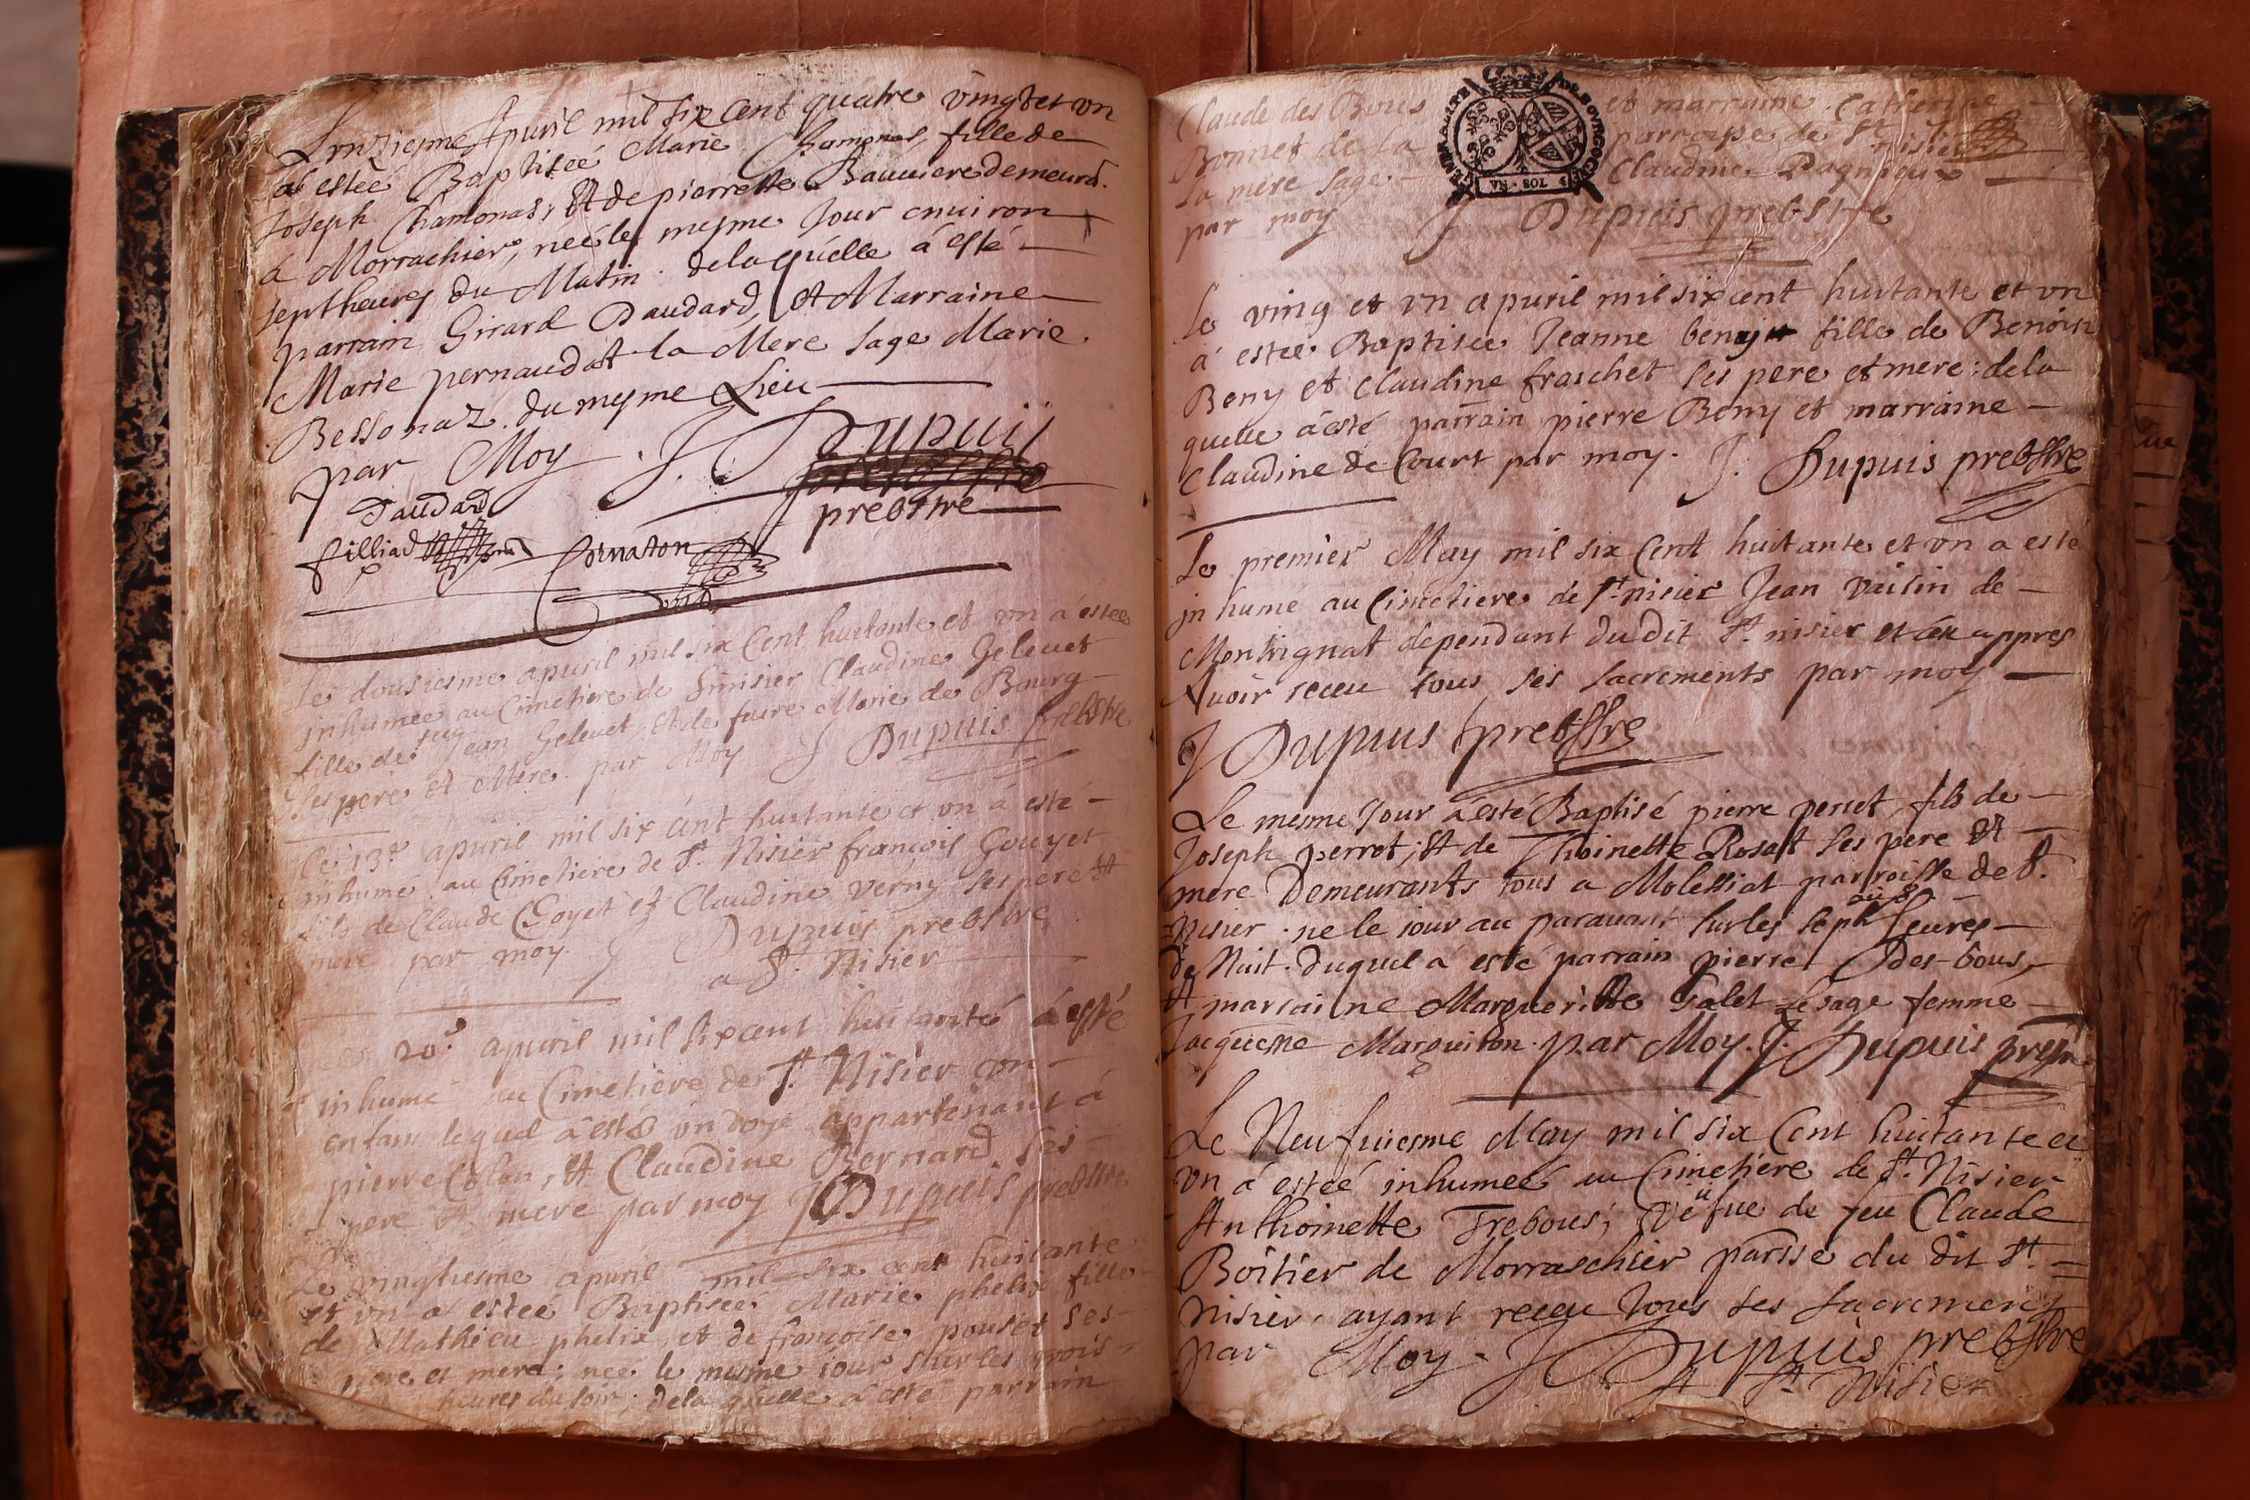 Lonziesme Apuril mil six cent quatre vingt et vn
a estéé Baptiséé Marie Chamonas, fille de
Joseph Chamonas, et de pierrette Bauuiere demeurā.
a Morrachier, néé le mesme Jour enuiron
sept heures du Matin. de laquelle á esté
parrain Girard Daudard, et Marraine
Marie pernaudat la Mere sage Marie
Bessonaz. du mesme Lieu
par Moy . J. Dupuis
prebstre
Daudard
filliad Cornaton
Le dousiesme apuril mil six cent huitante et vn a estéé
inhumee au Cimetiere de Sinisier Claudine Geleuet
fille de feu Jean Geleuet, et de Marie de Bourg
ses pere et Mere. par Moy J Dupuis prebstre
Le 13e apuril mil six cent huitante et vn á esté
inhumé au Cimetiere de St. Nisier françois Gouyet
fils de Claude Goyet et Claudine verny ses pere et
mere par moy. J Dupuis prebstre
a St. Nisier
20e apuril mil six cent huitante á esté
inhumé au Cimetiere de St. Nisier vn
enfant lequel á esté ondoyé appartenant á
pierre Colon, et Claudine Bernard ses
pere et mere par moy J Dupuis prebstre
Le vingtiesme apuril mil six cent huitante
et vn a estéé Baptiséé Marie phelix fille
de Mathieu phelix, et de françoise pouset ses
pere et mere; néé le mesme iour sur les trois
heures du soir; de la quelle á esté parrain
Claude des Bous et marraine Catherine
Bonnet de la parroisse de St nisier
la mere sage Claudine Pagnioux
par moy J Dupuis prebstre
GENERALITE DE BOURGOGNE
SOL
Le ving et vn apuril mil six cent huitante et vn
á estéé Baptisée Jeanne beny fille de Benoist
Beny et Claudine fraischet ses pere et mere : de la
quelle á esté parrain pierre Beny et marraine
Claudine de Court par moy. J. Dupuis prebstre
Le premier May mil six Cent huitante et vn a esté
inhumé au Cimetiere de St. nisier Jean vaisin de
Montrignat dependant du dit St nisier et ce appres
Auoir receu tous ses sacrements par moy
J Dupuis prebstre
Le mesme Jour á esté Baptisé pierre perret fils de
Joseph perret, et de Thoinette Rosat ses pere et
mere Demeurants tous a Molessiat parroisse de St.
Nisier. ne le iour au parauant sur les sept ou 8 heures
de Nuit. duquel a esté parrain pierre des-bous,
et marraine Margueritte Galet Le sage femme
Jacqueme Marguiron. par Moy. J. Dupuis prestre
Le Neufuiesme May mil six Cent huitante et
vn á estéé inhumeé au Cimetiere de St. Nisier
Anthoinette Trebous, vëfue de feu Claude
Boitier de Morraschier parsse du dit St.
nisier, ayant receu tous ses sacrements
par Moy. J Dupuis prebstre
A St Nisier